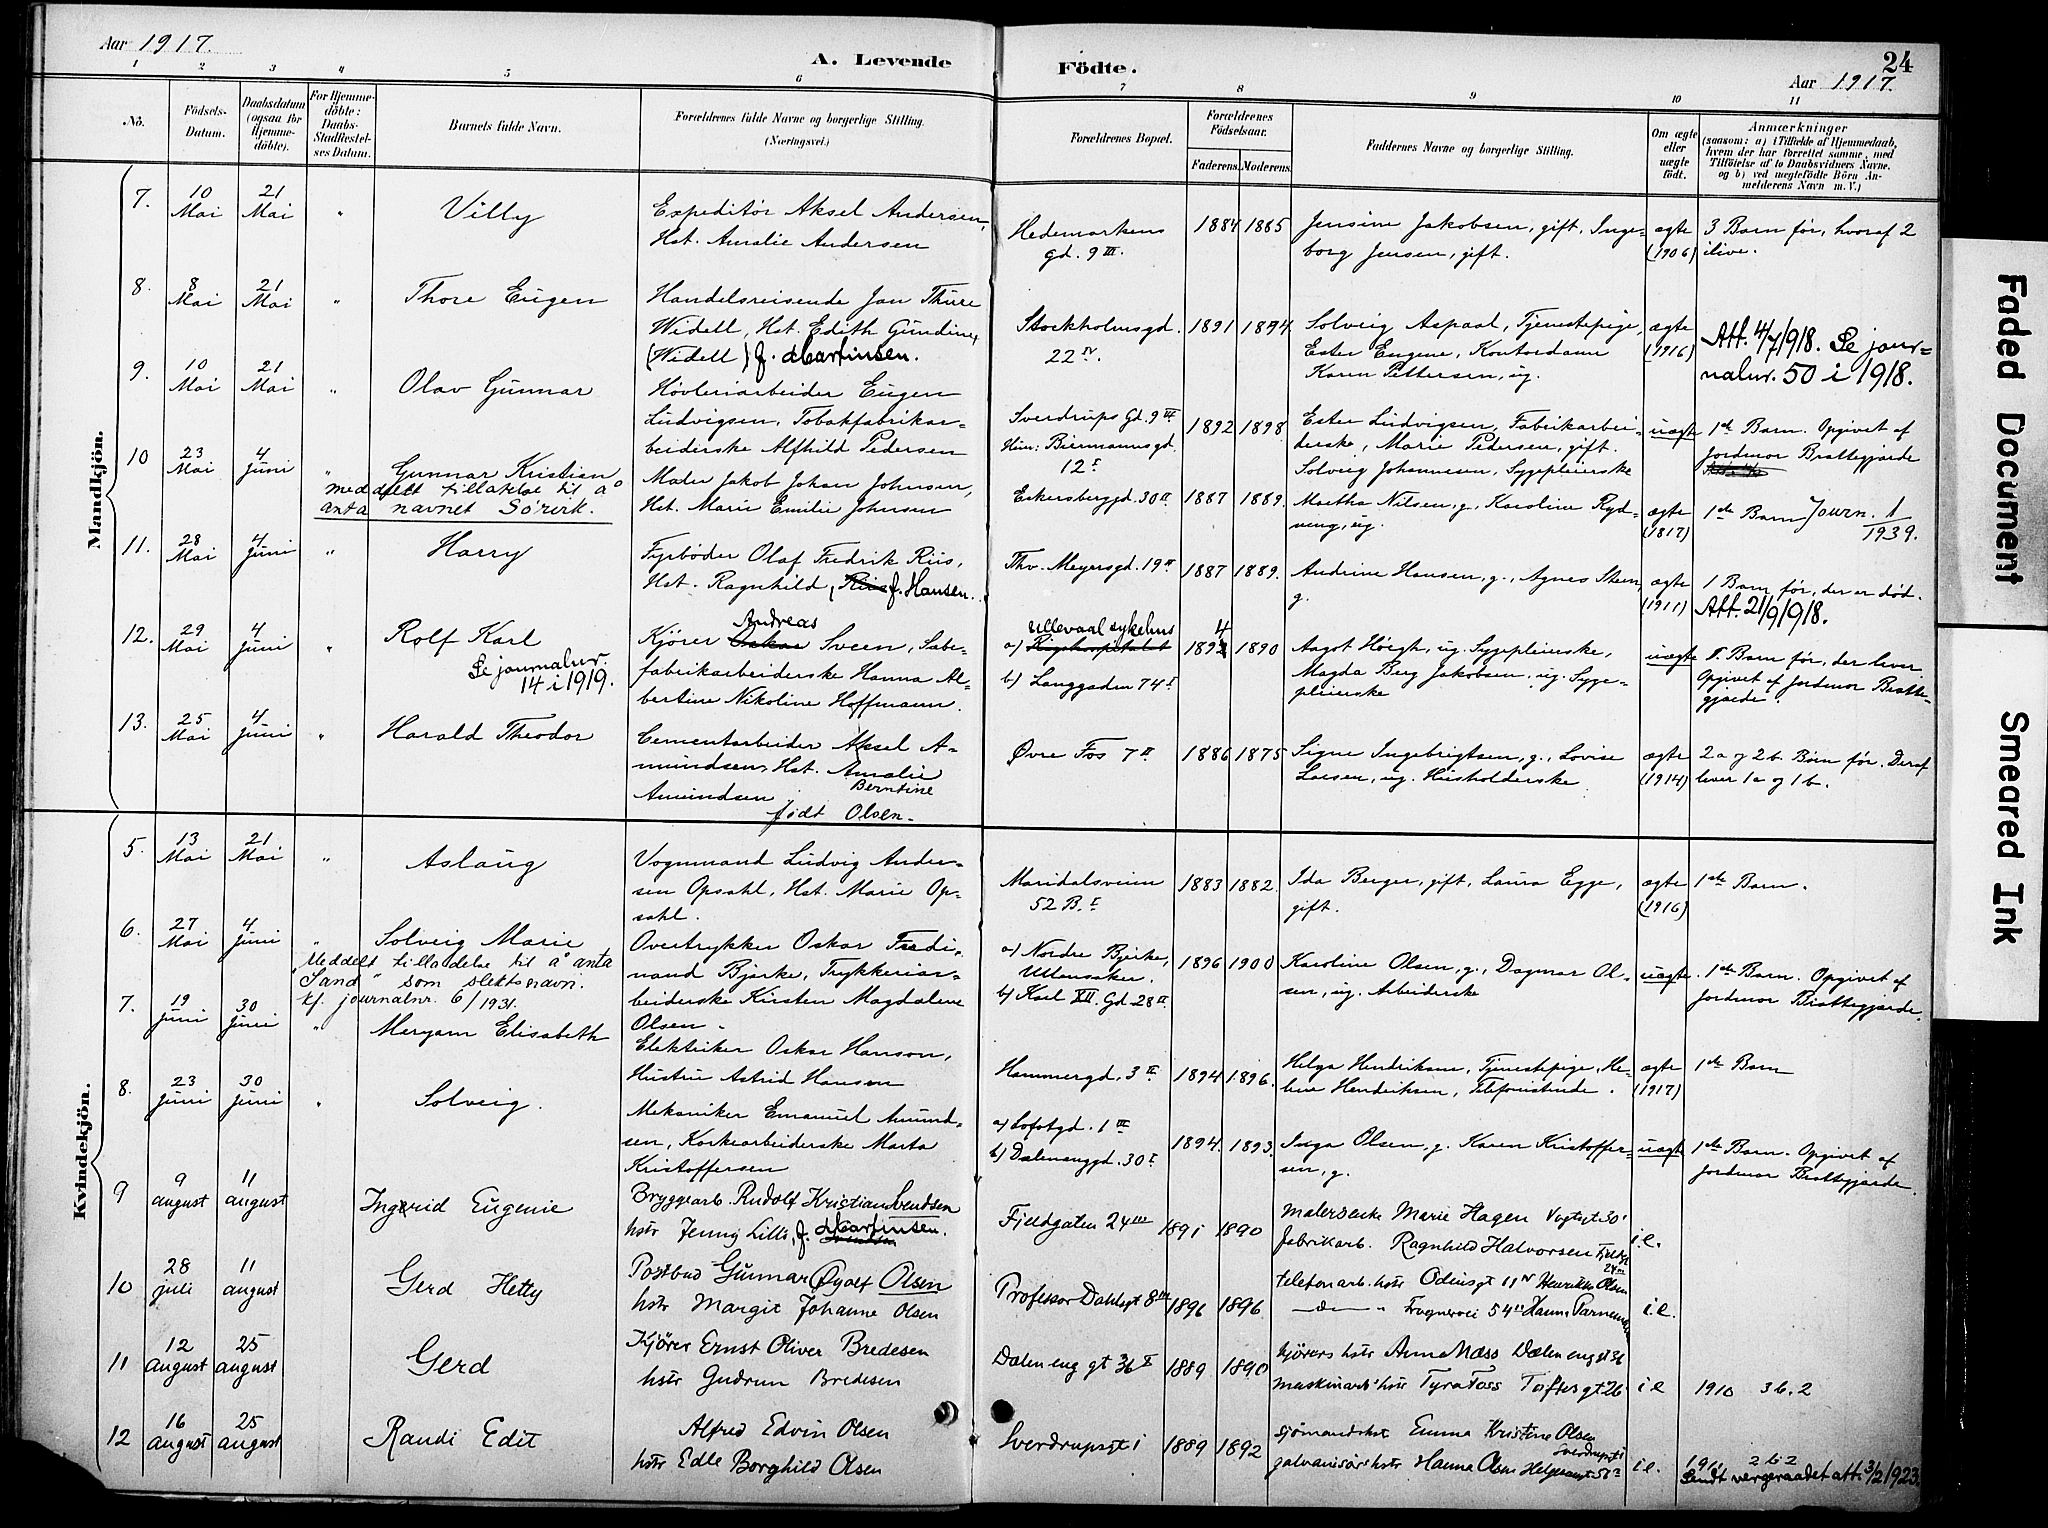 Aar 1917.
A. Levende Födte.
24
Aar 1917.
1 2 3 4 5 6 7 8 9 10 11
No.
Födsels-Datum.
Daabsdatum (ogsaa for Hjemme-döbte).
For Hjemme-döbte: Daabs-Stadfæstel-ses Datum.
Barnets fulde Navn.
Forældrenes fulde Navne og borgerlige Stilling.
(Næringsvei.)
Forældrenes Bopæl.
Forældrenes Födselsaar.
Faderens. Moderens.
Faddernes Navne og borgerlige Stilling.
Om ægte eller uægte födt.
Anmærkninger
(saasom: a) i Tilfælde af Hjemmedaab, hvem der har forrettet samme, med Tilföielse af to Daabsvidners Navne, og b) ved uægtefödte Börn An-melderens Navn m. V.)
Mandkjön.
7. 10 Mai 21 Mai " Villy
Expeditör Aksel Andersen,
Hst. Amalie Andersen
Hedemarkens
gd. 9 III.
1884 1885
Jensine Jakobsen, gift, Inge-
borg Jensen, gift.
ægte
(1906)
3 Barn før, hvoraf 2
ilive.
8. 8 Mai 21 Mai " Thore Eugen
Handelsreisende Jan Thure
Widell, Hst. Edith Gundine
(Widell) f. Martinsen.
Stockholmsgd.
22 IV.
1891 1894
Solveig Aspaal, Tjenestepige,
Ester Eugene, Kontordame
Karen Pettersen, ug.
ægte
(1916)
Att. 4/7 1918. Se jour-
nalnr. 50 i 1918.
9. 10 Mai 21 Mai " Olav Gunnar
Høvleriarbeider Eugen
Ludvigsen, Tobakfabrikar-
beiderske Alfhild Pedersen
Sverdrups Gd. 9 III
Hun: Biermannsgd.
12 I
1892 1898
Ester Ludvigsen, Fabrikarbei-
derske, Marie Pedersen, gift.
Solveig Johannesen, Sygepleierske
uægte
1ste Barn. Opgivet af
Jordmor Brattegjærde
10 23 Mai 4 Juni " Gunnar Kristian
meddelt tillatelse til å
anta navnet Sörerk.
Maler Jakob Johan Johnsen,
Hst. Marie Emilie Johnsen
Eckersberggd. 30 II
1887 1889
Martha Nilsen, g., Karoline Ryd-
ning, ug.
ægte
(1817)
1ste Barn Journ. 1/1939.
11. 28 Mai 4 Juni " Harry
Fyrbøder Olaf Fredrik Riis,
Hst. Ragnhild, Riis f. Hansen.
Thv. Meyersgd. 19 II
1887 1889.
Andrine Hansen, g., Agnes Steen,
g.
ægte
(1911)
1 Barn før, der er død.
Att. 21/9 1918.
12. 29 Mai 4 Juni " Rolf Karl
Se journalnr.
14 i 1919.
Andreas
Kjører Oskar Sveen, Sæbe-
fabrikarbeiderske Hanna Al-
bertine Nikoline Hoffmann.
Ullevaal sykehus
a) Rigshospitalet
b) Langgaden 74 I
1894 1890
Aagot Höegh, ug. Sygepleierske,
Magda Berg Jakobsen, ug. Syge-
pleierske
uægte
1. Barn før, der lever
Opgivet af Jordmor Bratte-
gjærde.
13. 25 Mai 4 Juni " Harald Theodor
Cementarbeider Aksel A-
mundsen, Hst. Amalie
Berntine
Amundsen,
født Olsen.
Øvre Fos 7 II
1886 1875
Signe Ingebrigtsen, g., Lovise
Larsen, ug. Husholderske
ægte
(1914)
2 a og 2 b. Børn før. Deraf
lever 1 a og 1 b.
Kvindekjön.
5. 13 Mai 21 Mai " Aslaug
Vognmand Ludvig Ander-
sen Opsahl, Hst. Marie Op-
sahl.
Maridalsveien
52 B. I
1883 1882.
Ida Berger, gift, Laura Egge,
gift.
ægte
(1916)
1ste Barn.
6. 27 Mai 4 Juni " Solveig Marie
Meddelt tilladelse til å anta
"Sand" som slektsnavn.
kf. journalnr. 6/1931.
Overtrykker Oskar Ferdi-
nand Bjørke, Trykkeriar-
beiderske Kirsten Magdalene
Olsen.
a) Nordre Bjerke,
Ullensaker.
b) Karl XII. Gd. 28 II
1896 1900
Karoline Olsen, g., Dagmar Ol-
sen, ug. Arbeiderske
uægte.
1ste Barn. Opgivet af
Jordmor Brattegjærde.
7. 19 Juni 30 Juni " Meryam Elisabeth
Elektriker Oskar Hanson,
Hustru Astrid Hanson
Hammergd. 3 II
1894 1896.
Helga Hendriksen, Tjenestepige, He-
lene Hendriksen, Telefonistinde.
ægte
(1917)
1ste Barn
8. 23 Juni 30 Juni " Solveig.
Mekaniker Emanuel Amund-
sen, Korkearbeiderske Marta
Kristoffersen
a) Lofotgd. 1 III
b) Dælenenggd. 30 I
1894. 1893.
Inga Olsen, g. Karen Kristoffer-
sen, g.
uægte
1ste Barn. Opgivet af
Jordmor Brattegjærde.
9 9 august 11 august Ingerid Eugenie
Bryggearb. Rudolf Kristian Svendsen
hstr Jenny Lilli, f. Martinsen.
Fjeldgaten 24 III
1891 1890
malerenke Marie Hagen Vogtsgt 30
fabrikarb. Ragnhild Halvorsen Fjeldgt 24 III
i.e.
10 28 juli 11 august Gerd Hetty
Postbud Gunnar Øyolf Olsen
hstr Margit Johanne Olsen
Professor Dahlsgt 8 III
1896 1896
telefonarb. hstr Odinsgt 11 IV Henrikke Olsen
— do — " Frognervei 54 II Hanna
i.e.
11 12 august 25 august Gerd
Kjörer Ernst Oliver Bredesen
hstr Gudrun Bredesen
Dælenenggt 36 I
1889 1890
kjörers hstr Anna Næss Dælenenggt 36
maskinarb' hstr Tyra Foss Toftesgt 26
i e
1910 3 b. 2
12 16 august 25 august Randi Edit
Alfred Edvin Olsen
hstr Edle Borghild Olsen
Sverdrupsgt 1
1889 1892
sjömandshst Emma Kristine Olsen
Sverdrupsgt 1
galvanisörs hstr Hanna Olsen Helgesensgt 56
i e.
1911 2 b. 2
Sendt vergeraadet att. 3/2 1923.
Faded Document
Smeared Ink